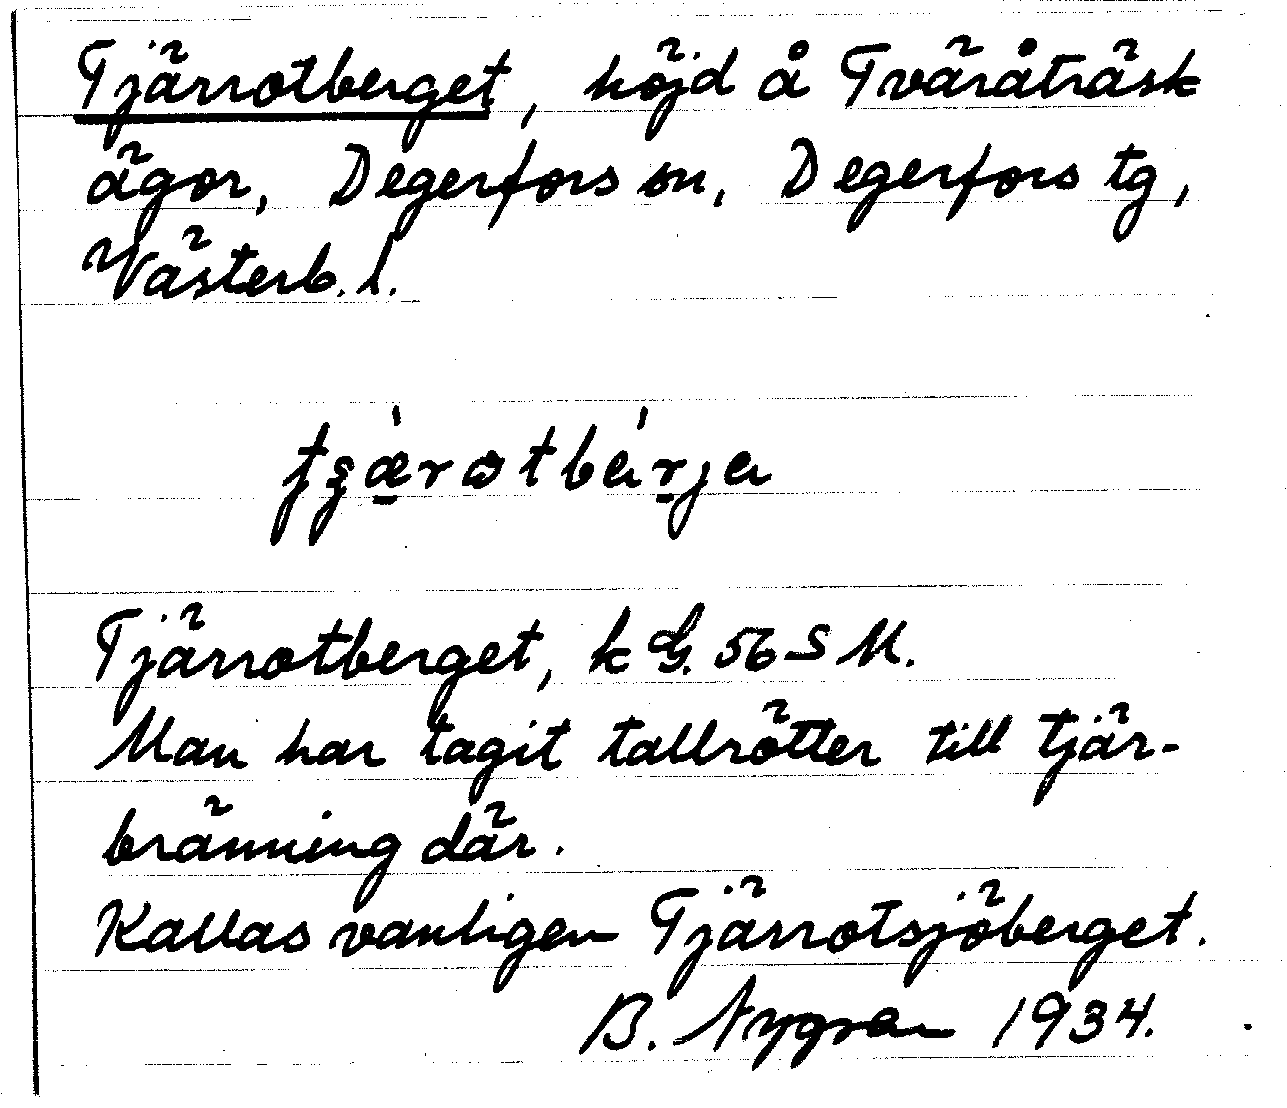 Tjärrotberget, höjd å Tväråträsk
ägor, Degerfors sn, Degerfors tg,
Västerb. l.
Tjärrotberget, k G. 56 S M.
Man har tagit tallrötter till tjär-
bränning där.
Kallas vanligen Tjärrotsjöberget.
B. Nygren 1934.